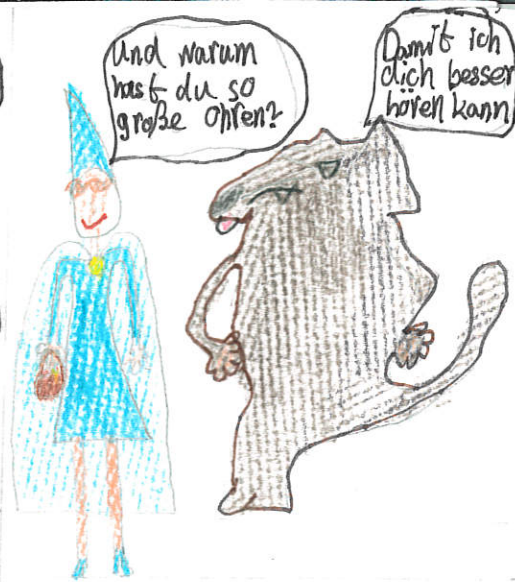 Und warum
hast du so
große Ohren?
Damit ich
dich besser
hören kann